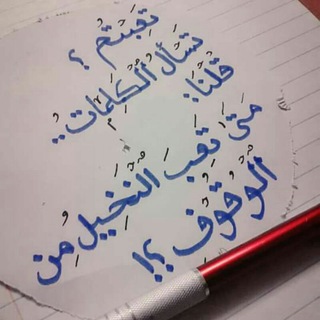 تَعِبتُم ؟
تَسألُ الكَلِمَاتُ ..
قُلنَا :
مَتى تَعِبَ النَّخِيلُ مِنَ
الوُقُوفِ ؟!